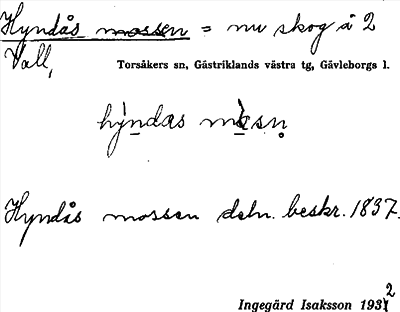 Hyndås mossen = nu skog å 2
Vall,
Torsåkers sn, Gästriklands västra tg, Gävleborgs l.
hýndas màsn̥
Hyndås mossen deln. beskr. 1837.
Ingegärd Isaksson 1932